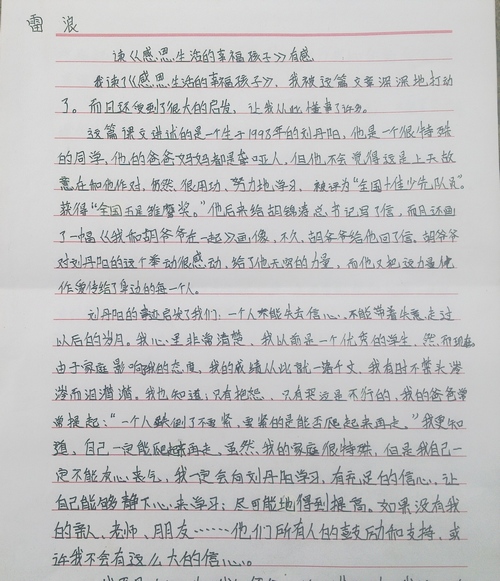 雷 浪
读《感恩生活的幸福孩子》有感
我读了《感恩生活的幸福孩子》,我被这篇文章深深地打动
了。而且还受到了很大的启发,让我从此懂事了许多。
这篇课文讲试的是个生于1993年的刘丹阳,他是一个很特殊
的同学,他的爸爸妈妈都是聋哑人,但他不会觉得这是上天故
意在和他作对,仍然很用功、努力地学习,被评为“全国十佳少先队员”。
获得“全国五星雏鹰奖。”他后来给胡锦涛总书记写了信,而且还画
了一幅《我和胡爷爷在一起》画像,不久,胡爷爷给他回了信。胡爷爷
对刘丹阳的这个举动很感动,给了他无穷的力量,而他又把这力量
传给了身边的每一个人。
刘丹阳的事迹启发了我们:一个人不能失去信心,不能带着失意走过
以后的岁月。我心里非常清楚,我以前是一个优秀的学生,然而现在
由于家庭影响我的态度,我的成绩从此就一落千丈,我有时不禁头
而泪潸潸。我也知道:只有抱怨、只有哭这是不行的,我的爸爸常
常提起:“一个人跌倒了不要紧,要紧的是能否爬起来再走。”我更知
道,自己一定能爬起来再走、虽然我的家庭很特殊,但是我自己一
定不能灰心丧气,我一定会向刘丹阳学习,有充足的信心,让
自己能够静下心来学习;尽可能地得到提高。如果没有我
的亲人、老师、朋友……他们所有人的鼓励和支持,或
许我不会有这么大的信心。